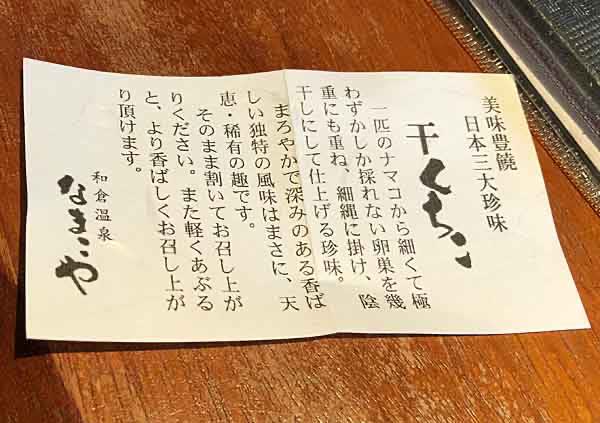 美味豊饒
日本三大珍味
干くちこ
一匹のナマコから細くて極
わずかしか採れない卵巣を幾
重にも重ね、細縄に掛け、陰
干しにして仕上げる珍味。
まろやかで深みのある香ば
しい独特の風味はまさに、天
恵・稀有の趣です。
そのまま割いてお召し上が
りください。また軽くあぶる
と、より香ばしくお召し上が
り頂けます。
和倉温泉
なまこや